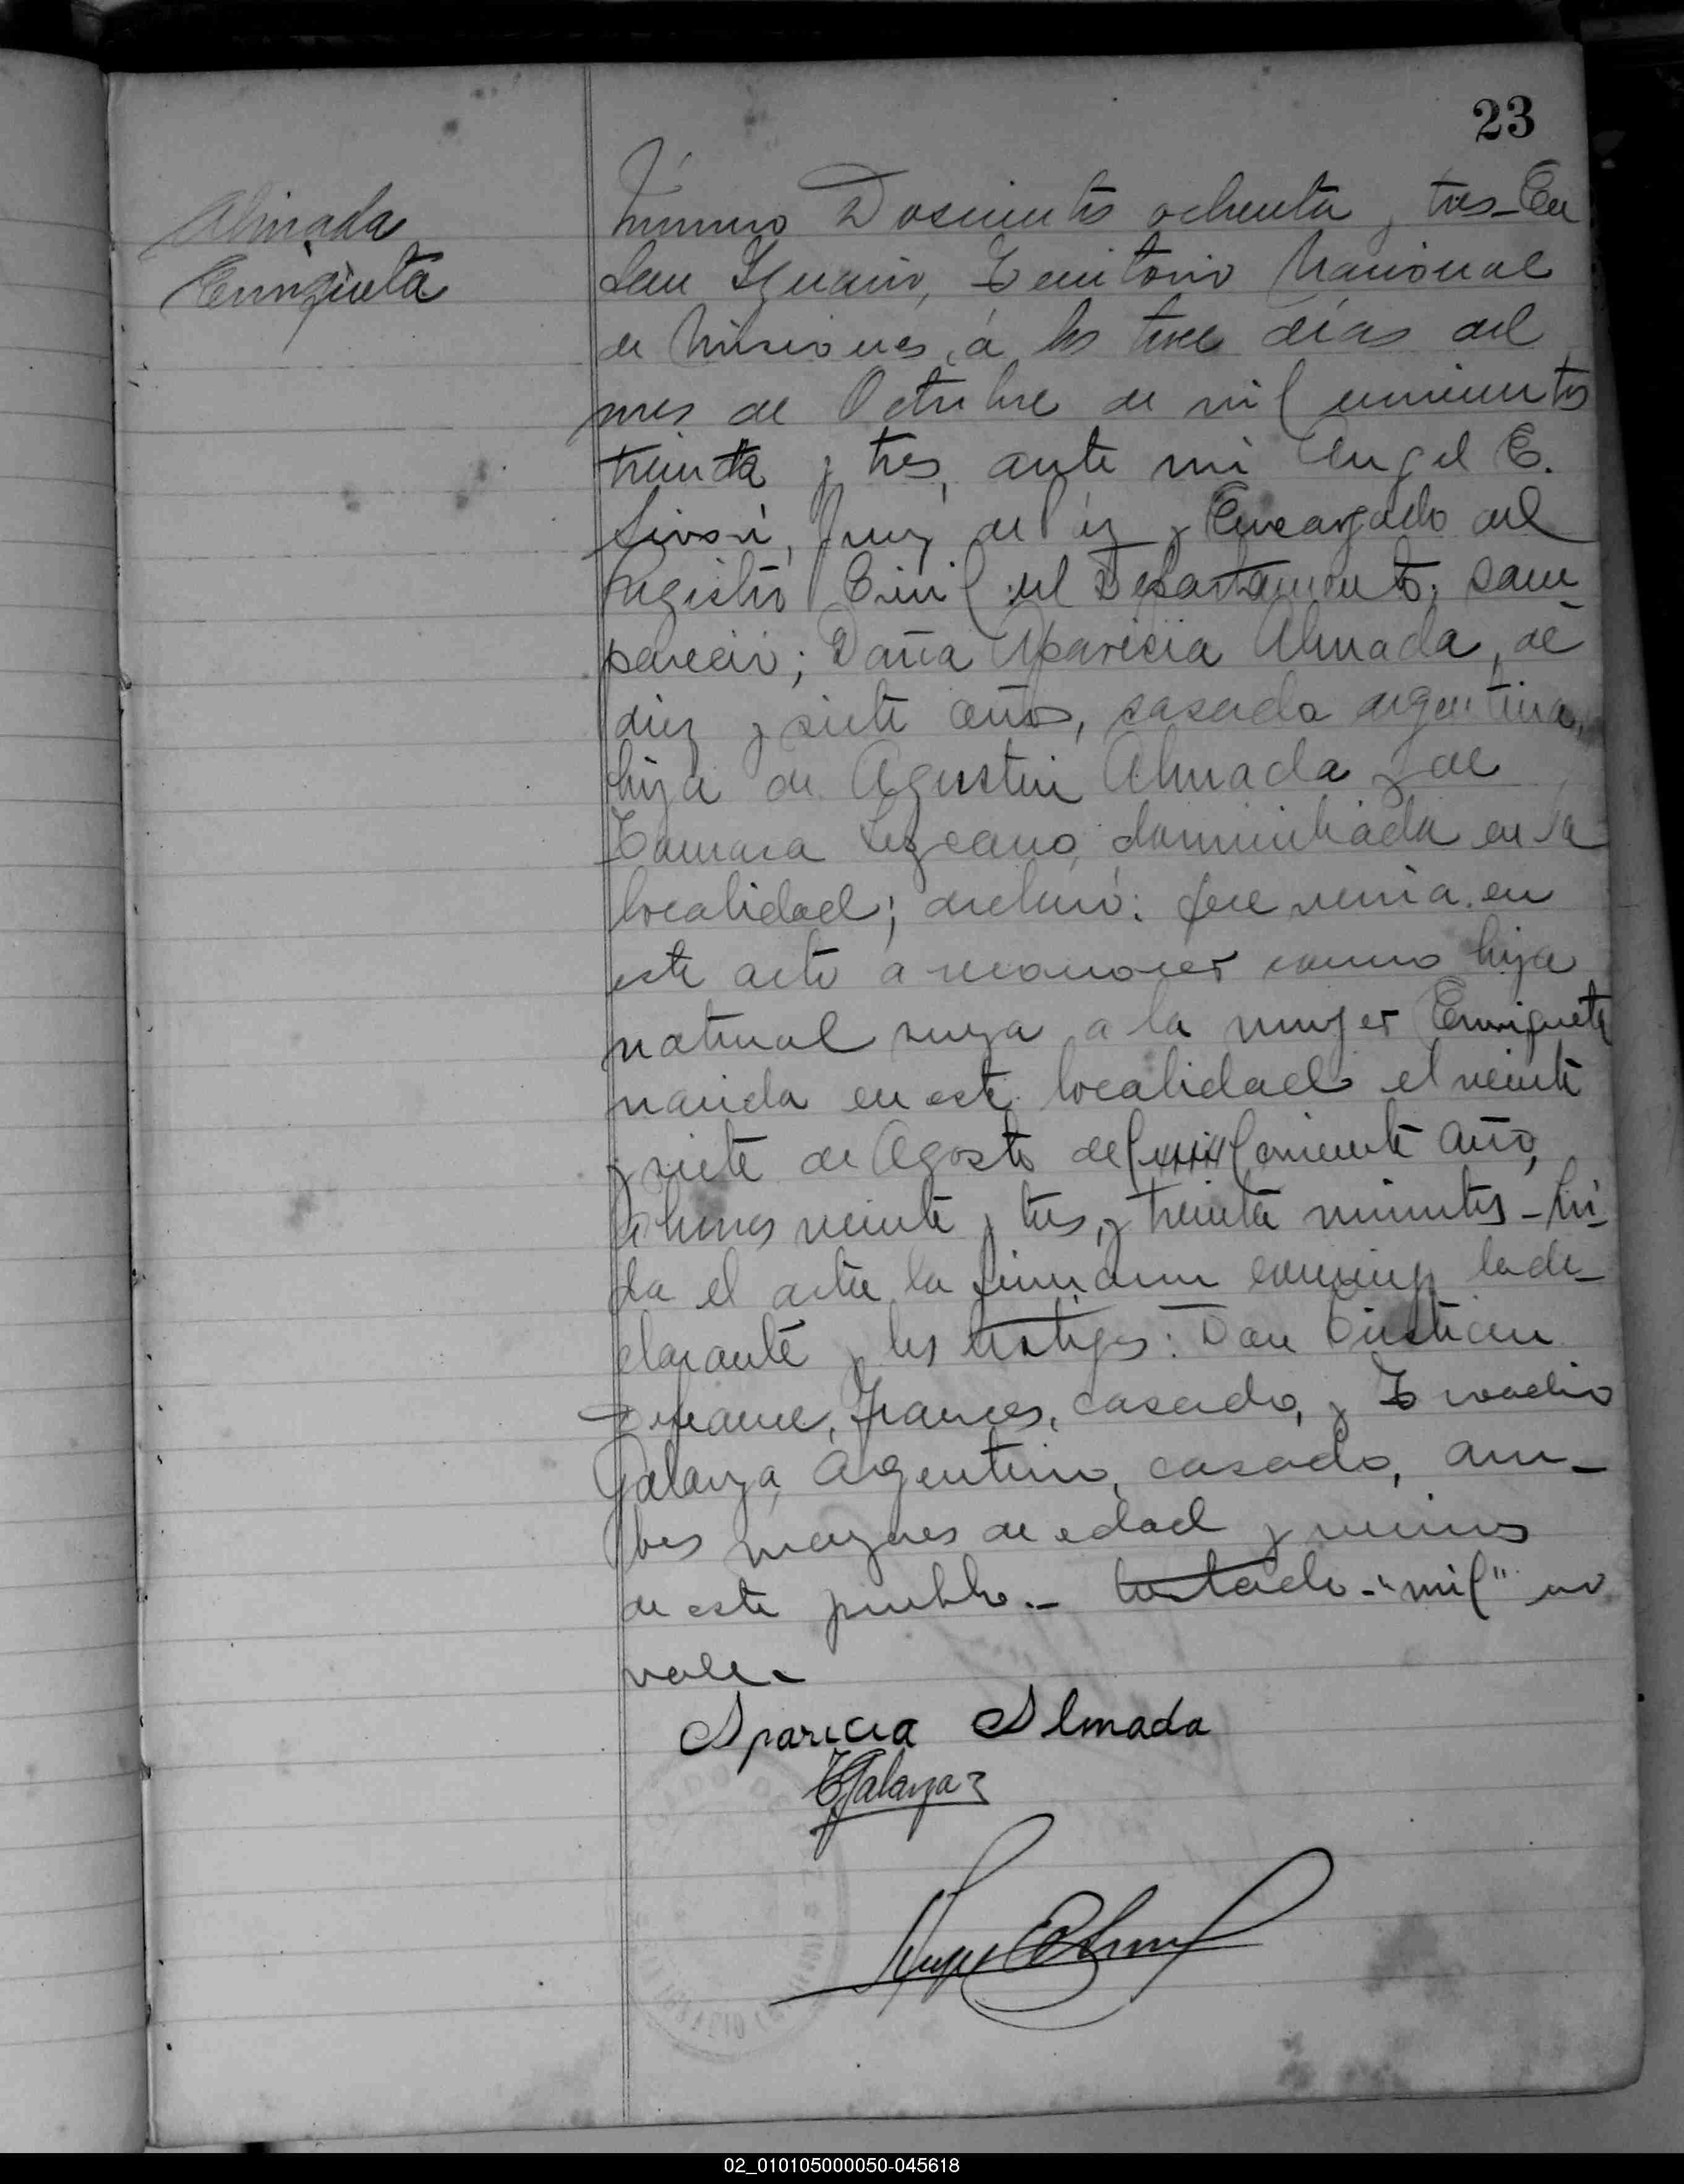 23
Almada
Enriqueta
Número Doscientos ochenta y tres - En
San Ignacio, Territorio Nacional
de Misiones, á los trece días del
mes de Octubre de mil novecientos
treinta y tres, ante mi Angel E.
Juez de Paz y Encargado del
Registro Civil del Departamento, com
pareció; Doña Aparicia Almada, de
diez y siete años, casada argentina,
hija de Agustin Almada y de
Tomasa Lezcano, domiciliada en la
localidad; declaró: Que venia en
este acto a reconocer como hija
natural suya a la mujer Enriqueta
nacida en esta localidad el veinte
y siete de Agosto del mil corriente año,
a horas veinte y tres, y treinta minutos - Leí-
da el acta la firmaron conmigo la de-
clarante y los testigos: Don
Frances, casado, y
Galarza, Argentino, casado, am-
bos mayores de edad y vecinos
de este pueblo. - testado - "mil" no
vale.
Aparicia Almada
E Galarza
02_010105000050-045618